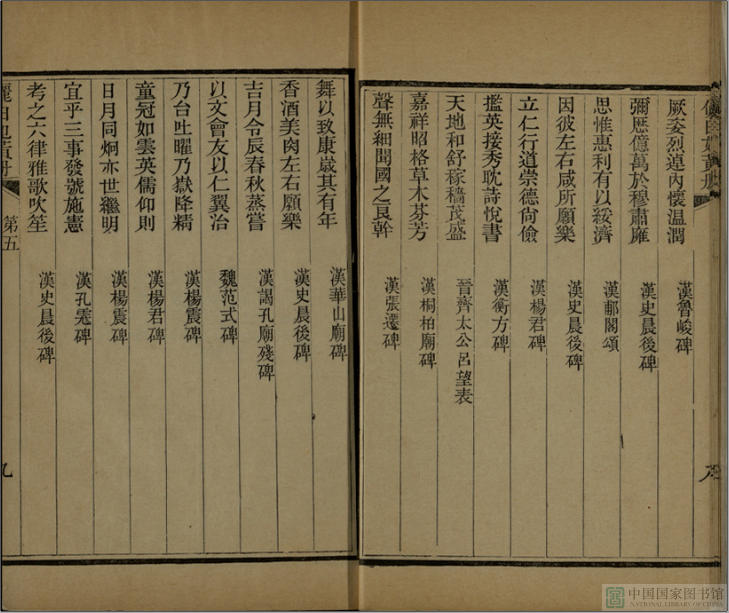 厥委烈逴內懷温潤 漢魯峻碑
彌歷億萬於穆肅雍 漢史晨後碑
思惟惠利有以綏濟 漢郙閣頌
因彼左右咸所願樂 漢史晨後碑
立仁行道崇德尙儉 漢楊君碑
擥英接秀耽詩悅書 漢衡方碑
天地和舒稼穡茂盛 晉齊太公呂望表
嘉祥昭格草木芬芳 漢桐柏廟碑
聲無細聞國之良幹 漢張遷碑
舞以致康歲其有年 漢華山廟碑
香酒美肉左右願樂 漢史晨後碑
吉月令辰春秋蒸嘗 漢謁孔廟殘碑
以文會友以仁翼治 魏范式碑
乃台吐曜乃嶽降精 漢楊震碑
童冠如雲英儒仰則 漢楊君碑
日月同炯亦世繼明 漢楊震碑
宜乎三事發號施憲 漢孔宙碑
考之六律雅歌吹笙 漢史晨後碑
第五
九
中国国家图书馆
NATIONAL LIBRARY OF CHINA